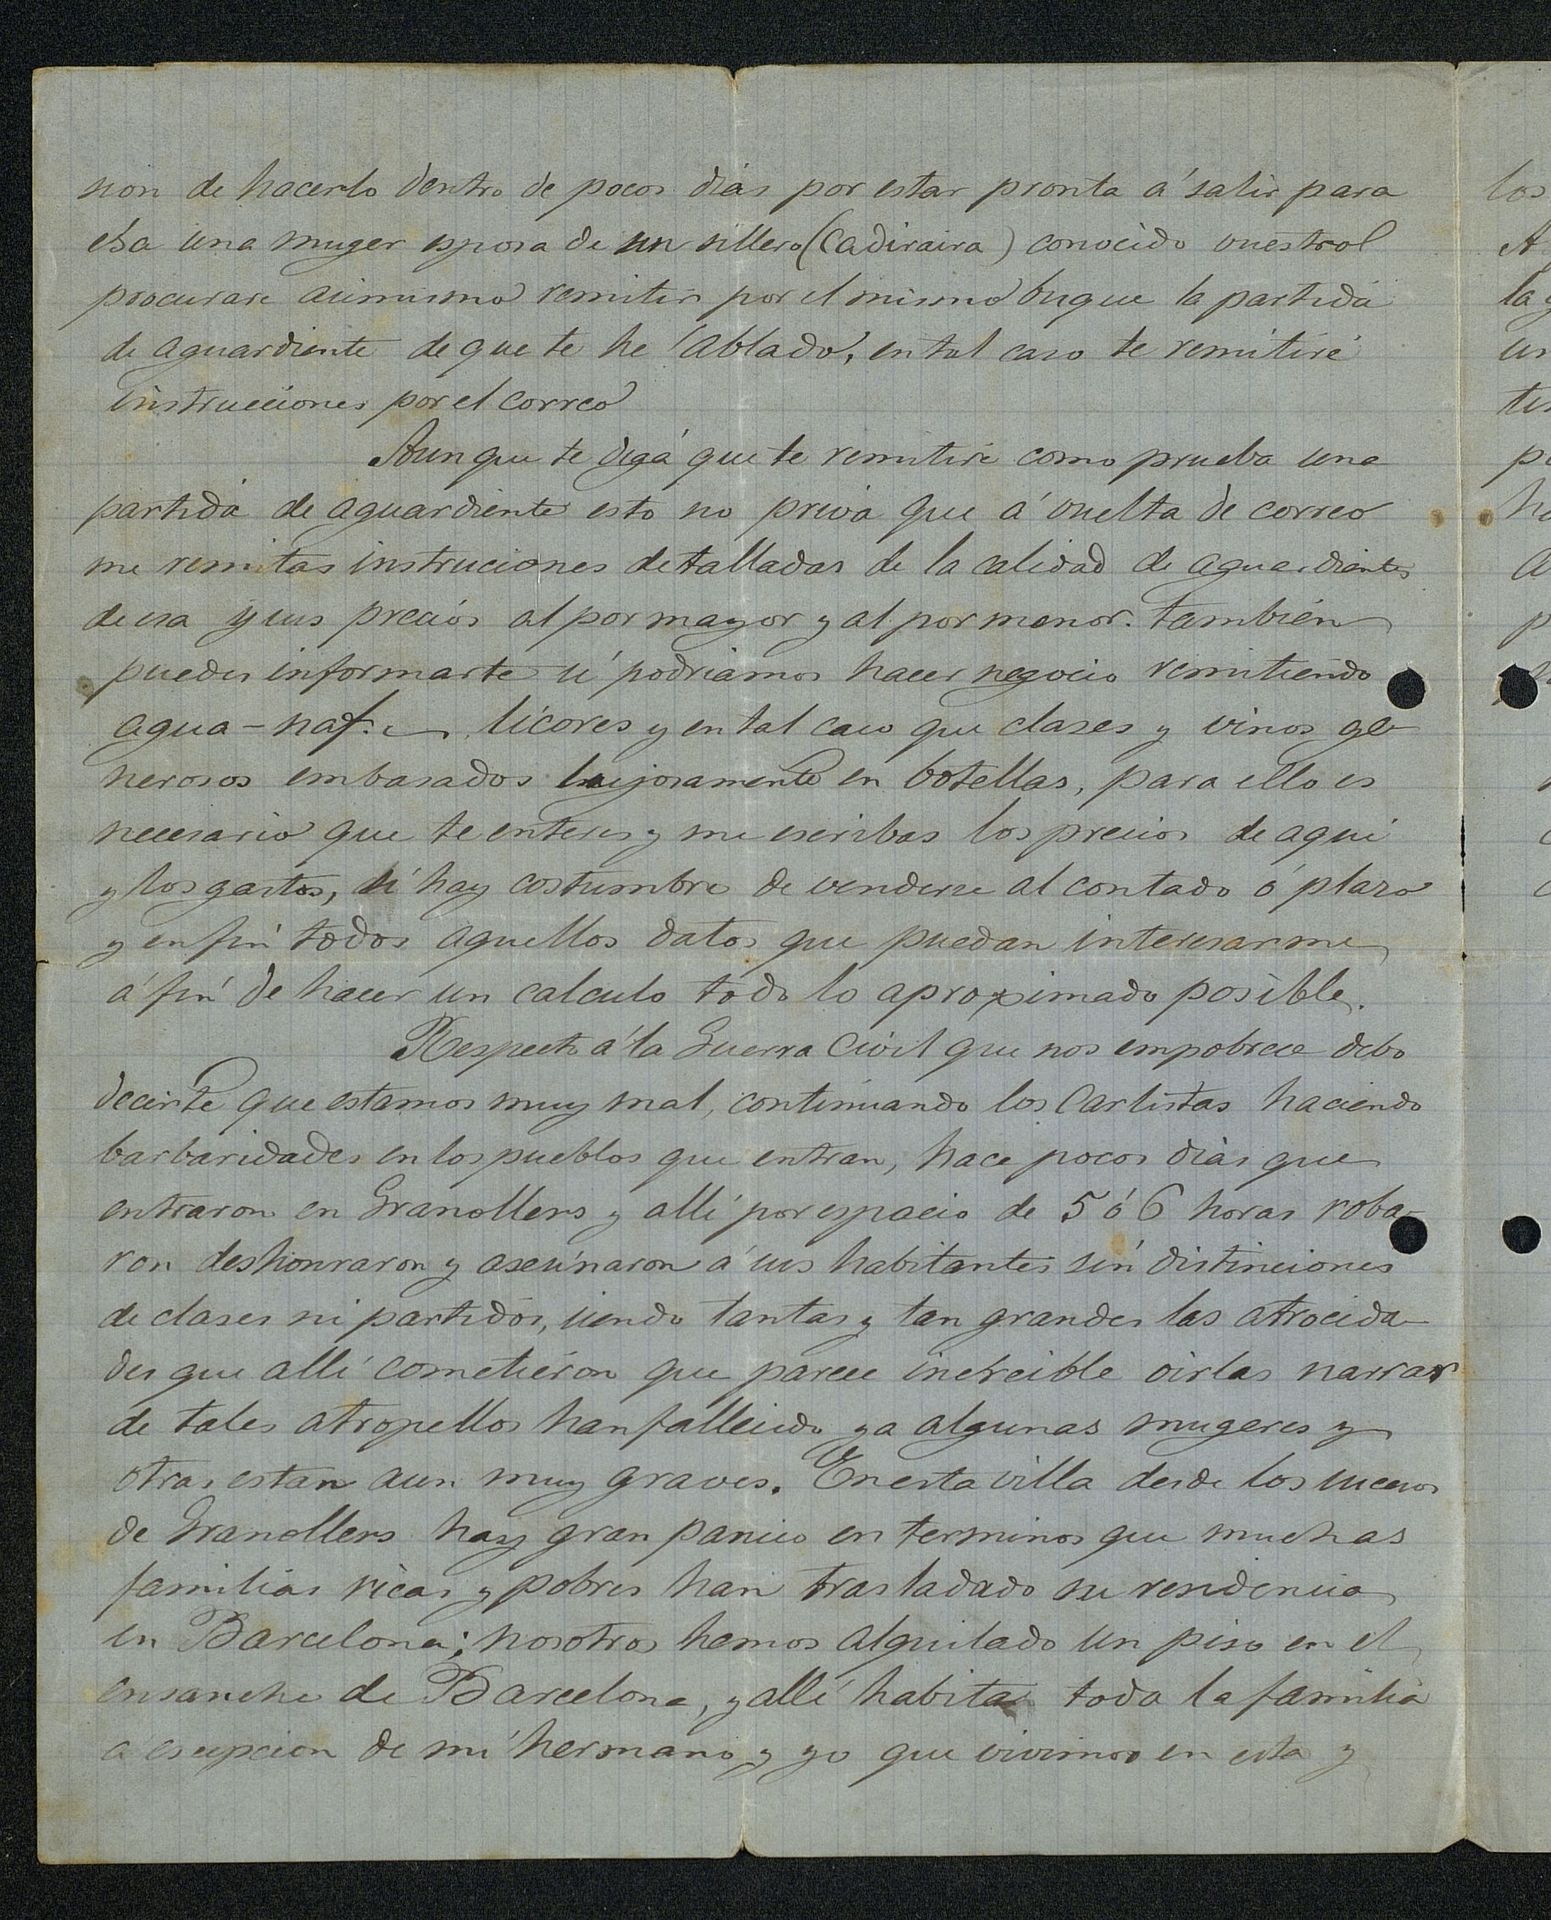 sion de hacerlo dentro de pocos dias por estar pronta á salir para
esa una muger esposa de un sillero (Cadiraira) conocido vuestro
procurare asimismo remitir por el mismo buque la partida
de aguardiente de que te he ablado, en tal caso te remitiré
instrucciones por el correo
Aunque te diga que te remitire como prueba una
partida de aguardiente esto no priva que á vuelta de correo
me remitas instruciones detalladas de la calidad de aguardientes
de esa y sus precios al por mayor y al por menor. Tambien
puedes informarte si podriamos hacer negocio remitiendo
agua-naf. licores y en tal caso que clases y vinos ge-
nerosos embasados lujosamente en botellas, para ello es
necesario que te enteres y me escribas los precios de aqui
y los gastos, si hay costumbre de venderse al contado ó plazo
y en fin todos aquellos datos que puedan interesarme
á fin de hacer un calculo todo lo aproximado posible.
Respecto á la Guerra Civil que nos empobrece debo
decirte que estamos muy mal, continuando los Carlistas haciendo
barbaridades en los pueblos que entran, hace pocos dias que
entraron en Granollers y allí por espacio de 5 ó 6 horas roba-
ron deshonraron y asesinaron á sus habitantes sin distinciones
de clases ni partidos, siendo tantas y tan grandes las atrocida-
des que allí cometieron que parece increible oirlas narrar
de tales atropellos han fallecido ya algunas mugeres y
otras estan aun muy graves. En esta villa desde los sucesos
de Granollers hay gran panico en terminos que muchas
familias ricas y pobres han trasladado su residencia
en Barcelona; nosotros hemos alquilado un piso en el
ensanche de Barcelona, y allí habita toda la familia
á escepcion de mi hermano y yo que vivimos en esta y